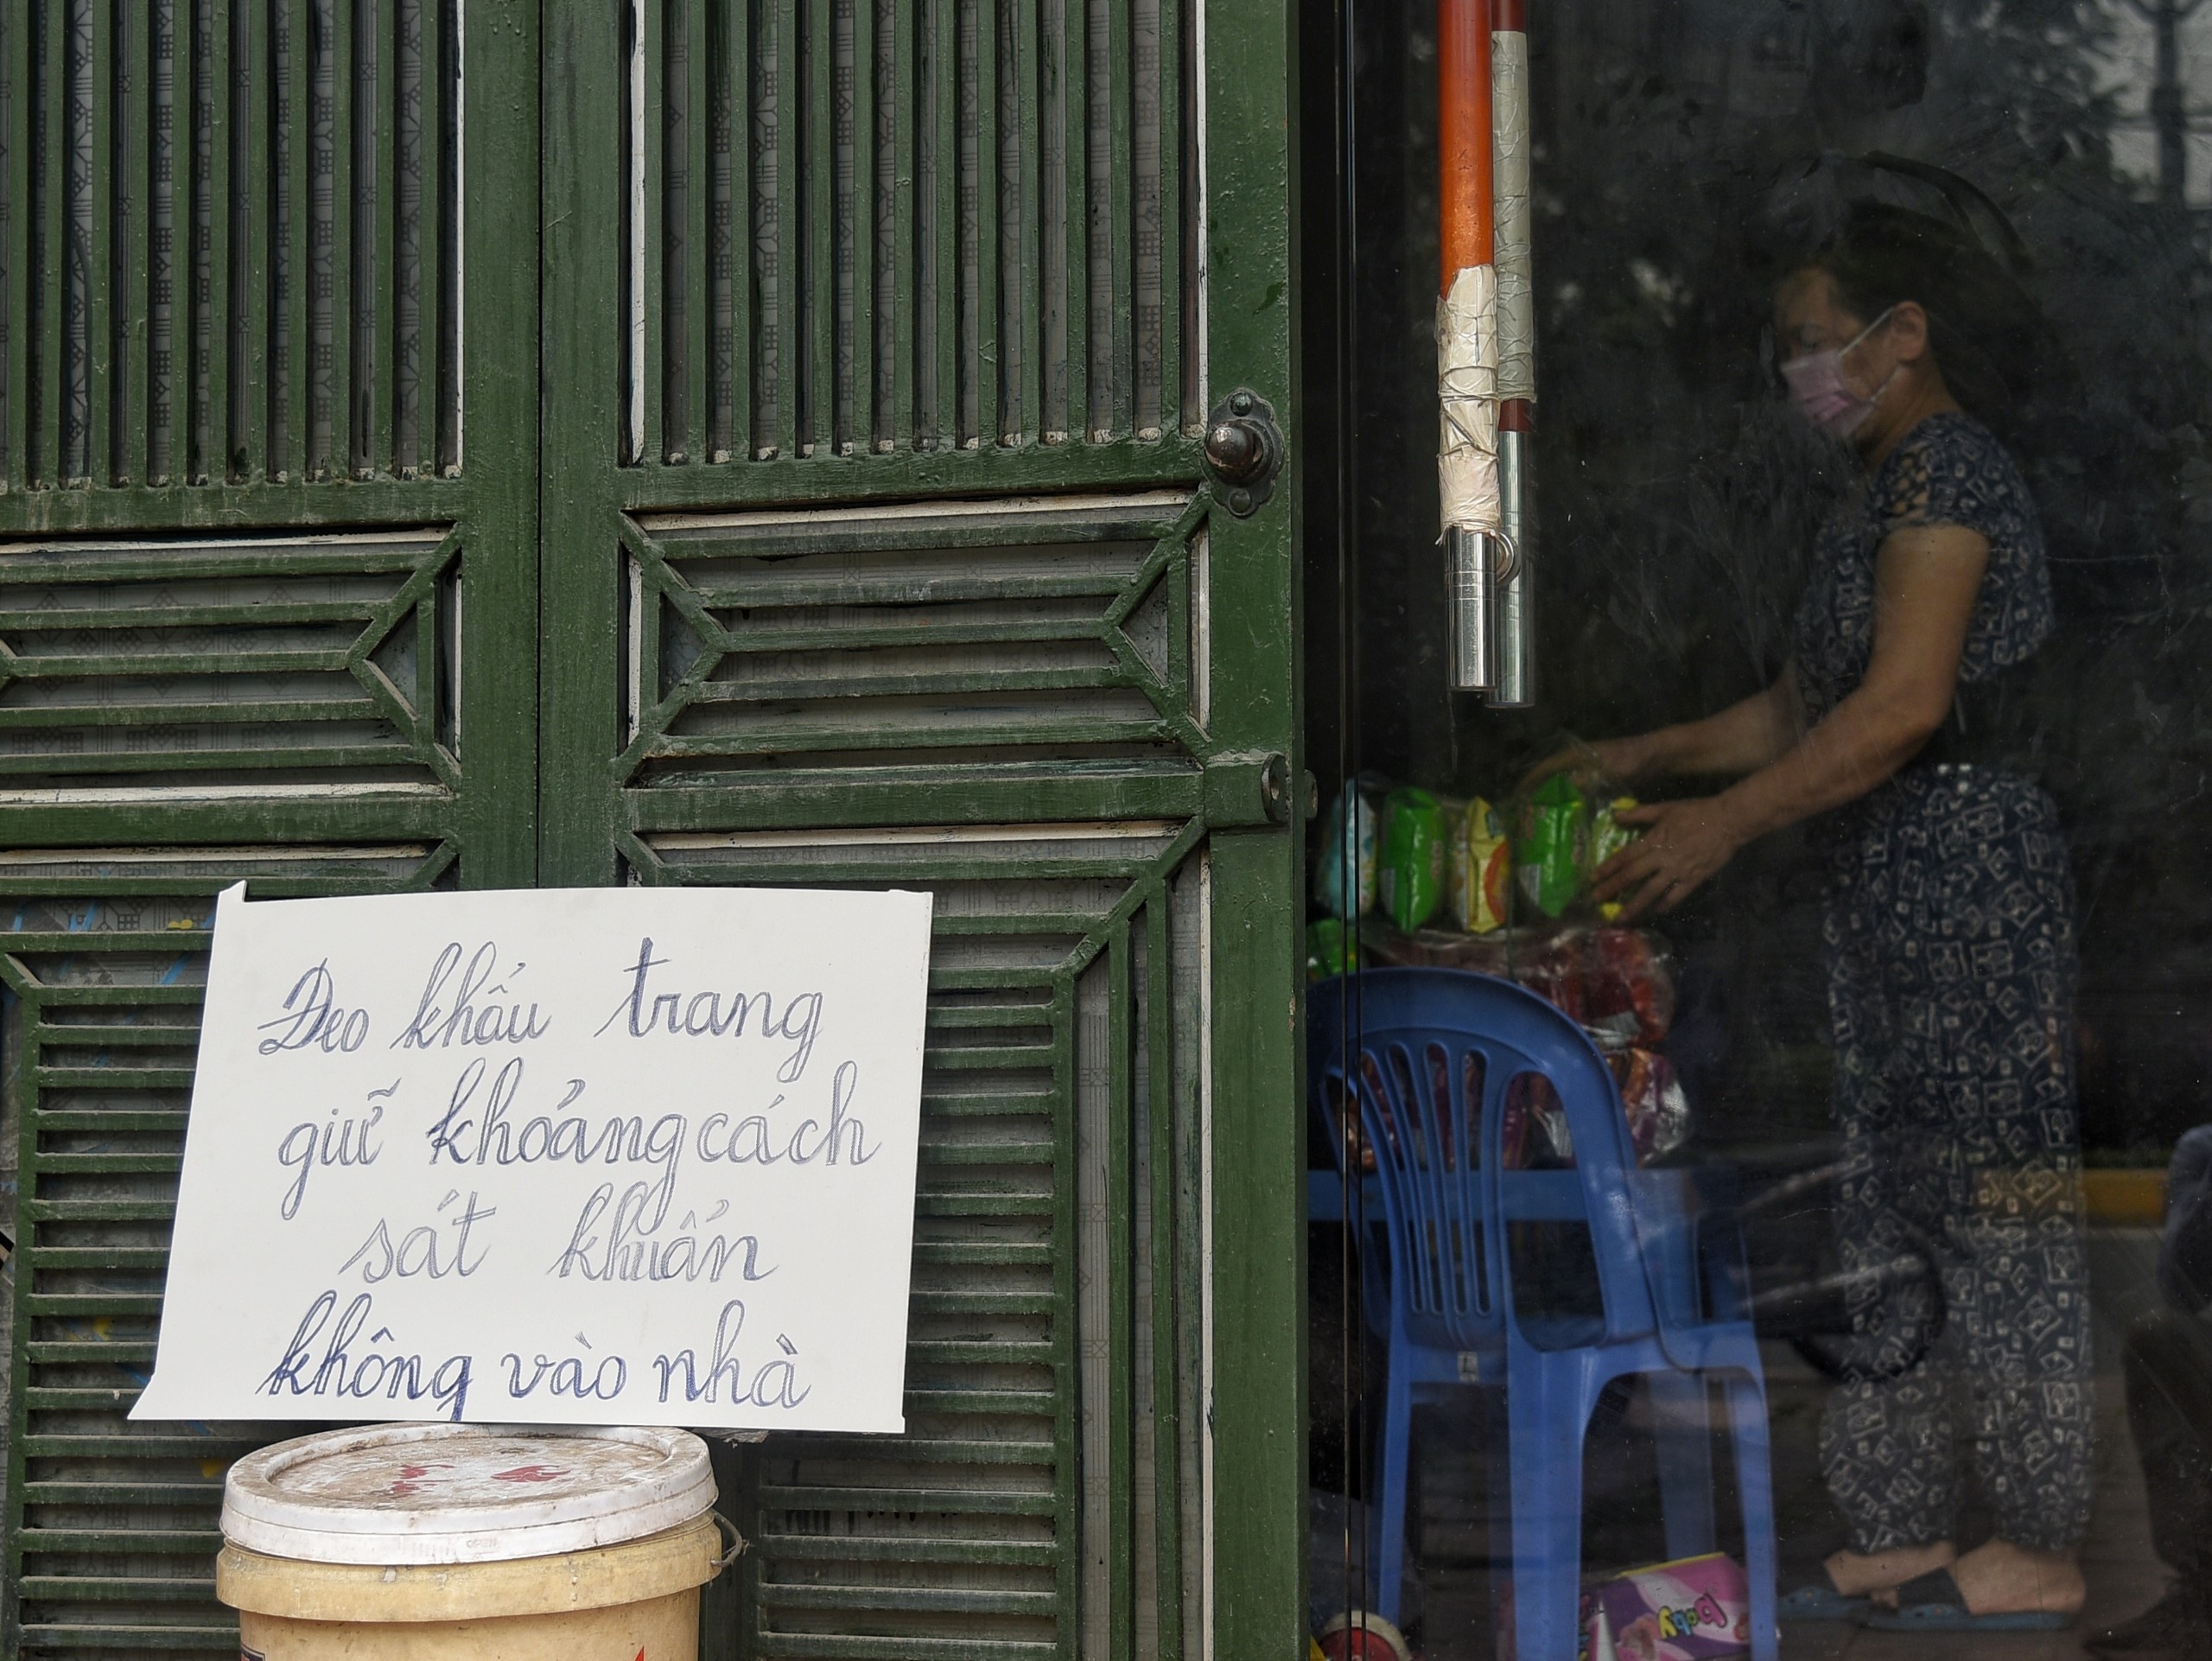 Đeo khẩu trang
giữ khoảng cách
sát khuẩn
không vào nhà
Poby